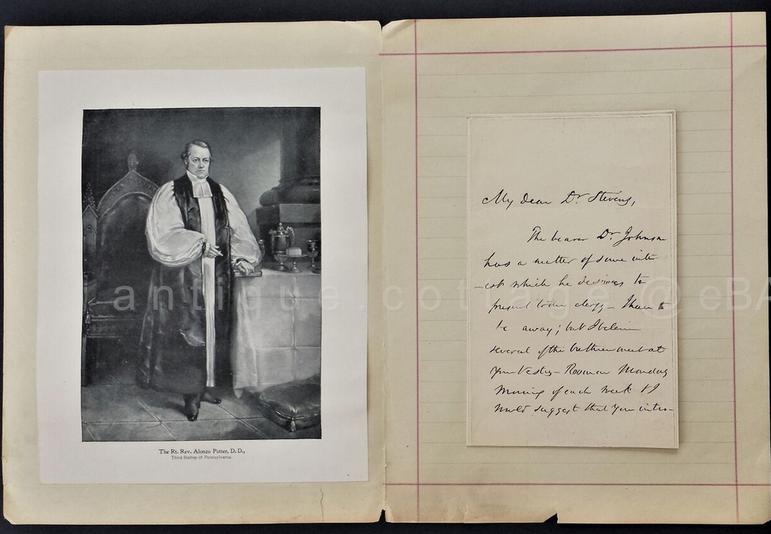 The Rt. Rev. Alonzo Potter, D. D.,
Third Bishop of Pennsylvania.
My dear Dr Stevens,
The bearer Dr Johnson
has a matter of some inter
-est which he desires to
present to our clergy - I have to
be away; but I believe
several of the brethren meet at
your Vestry-Room on Monday
morning of each week & I
would suggest that you intro-
antique.cottage@eBA